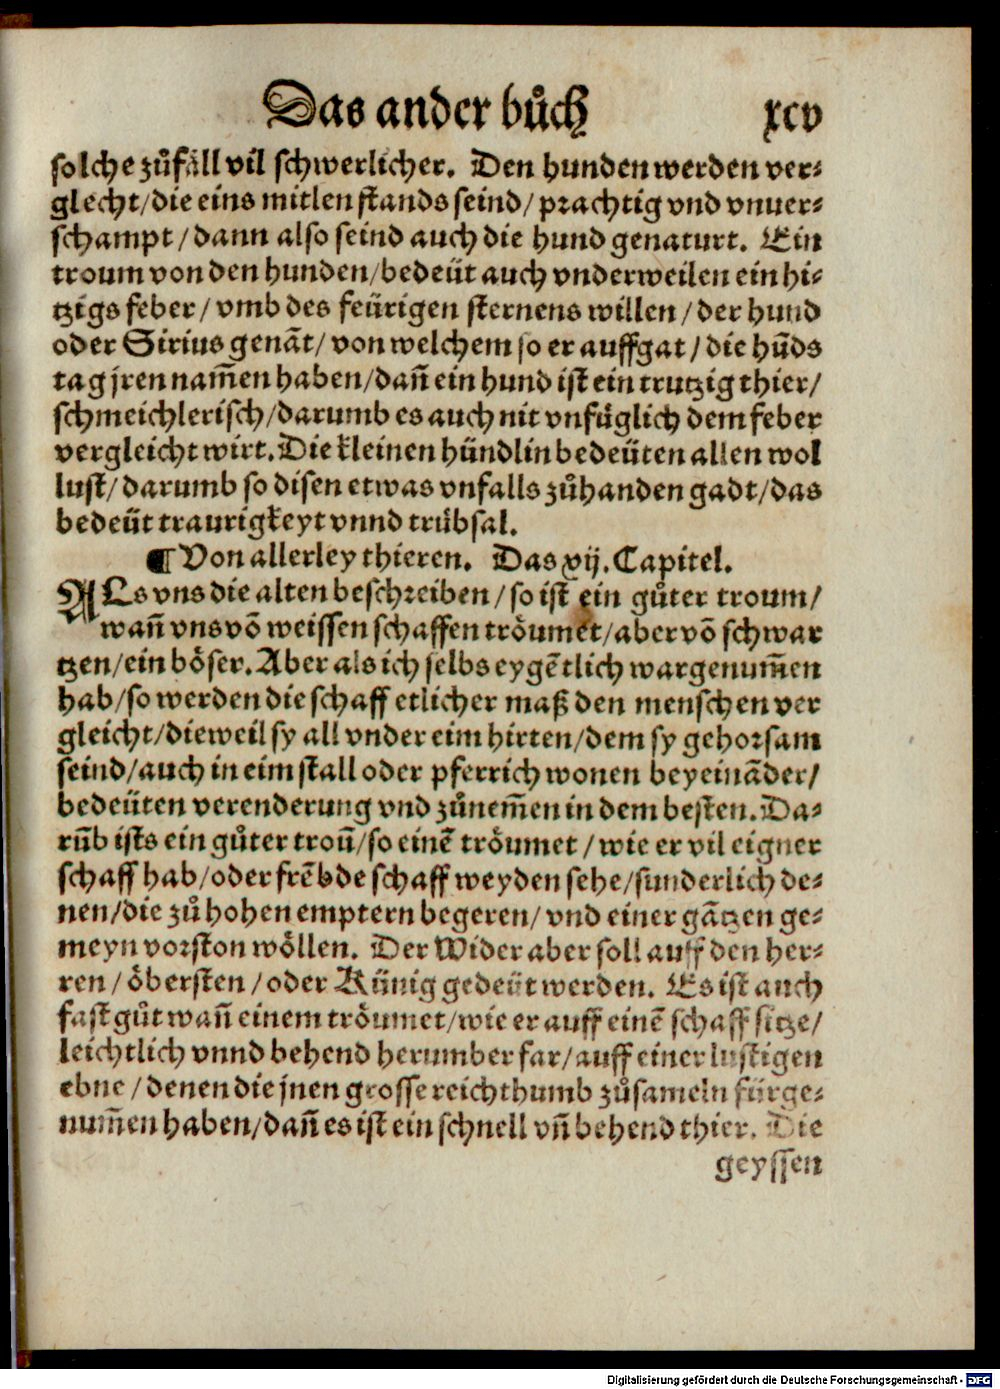 Das ander bůch xcv
solche zůfäll vil schwerlicher. Den hunden werden ver⸗
glecht/die eins mitlen stands seind/prachtig vnd vnuer⸗
schampt/dann also seind auch die hund genaturt. Ein
troum von den hunden/bedeüt auch vnderweilen ein hi⸗
tzigs feber/vmb des feürigen sternens willen/der hund
oder Sirius genāt/von welchem so er auffgat/die hūds
tag jren nam̄en haben/dañ ein hund ist ein trutzig thier/
schmeichlerisch/darumb es auch nit vnfůglich dem feber
vergleicht wirt. Die kleinen hündlin bedeüten allen wol
lust/darumb so disen etwas vnfalls zůhanden gadt/das
bedeüt traurigkeyt vnnd trübsal.
¶ Von allerley thieren. Das xij. Capitel.
ALs vns die alten beschreiben/so ist ein gůter troum/
wañ vns vō weissen schaffen tröumet/aber vō schwar
tzen/ein böser. Aber als ich selbs eygētlich wargenum̄en
hab/so werden die schaff etlicher maß den menschen ver
gleicht/dieweil sy all vnder eim hirten/dem sy gehorsam
seind/auch in eim stall oder pferrich wonen beyeināder/
bedeüten verenderung vnd zůnem̄en in dem besten. Da⸗
rūb ists ein gůter troū/so einē tröumet/wie er vil eigner
schaff hab/oder frēbde schaff weyden sehe/sunderlich de⸗
nen/die zů hohen emptern begeren/vnd einer gātzen ge⸗
meyn vorston wöllen. Der Wider aber soll auff den her⸗
ren/öbersten/oder Künig gedeüt werden. Es ist auch
fast gůt wañ einem tröumet/wie er auff einē schaff sitze/
leichtlich vnnd behend herumber far/auff einer lustigen
ebne/denen die jnen grosse reichthumb zůsameln fürge⸗
num̄en haben/dañ es ist ein schnell vñ behend thier. Die
geyssen
Digitalisierung gefördert durch die Deutsche Forschungsgemeinschaft - DFG